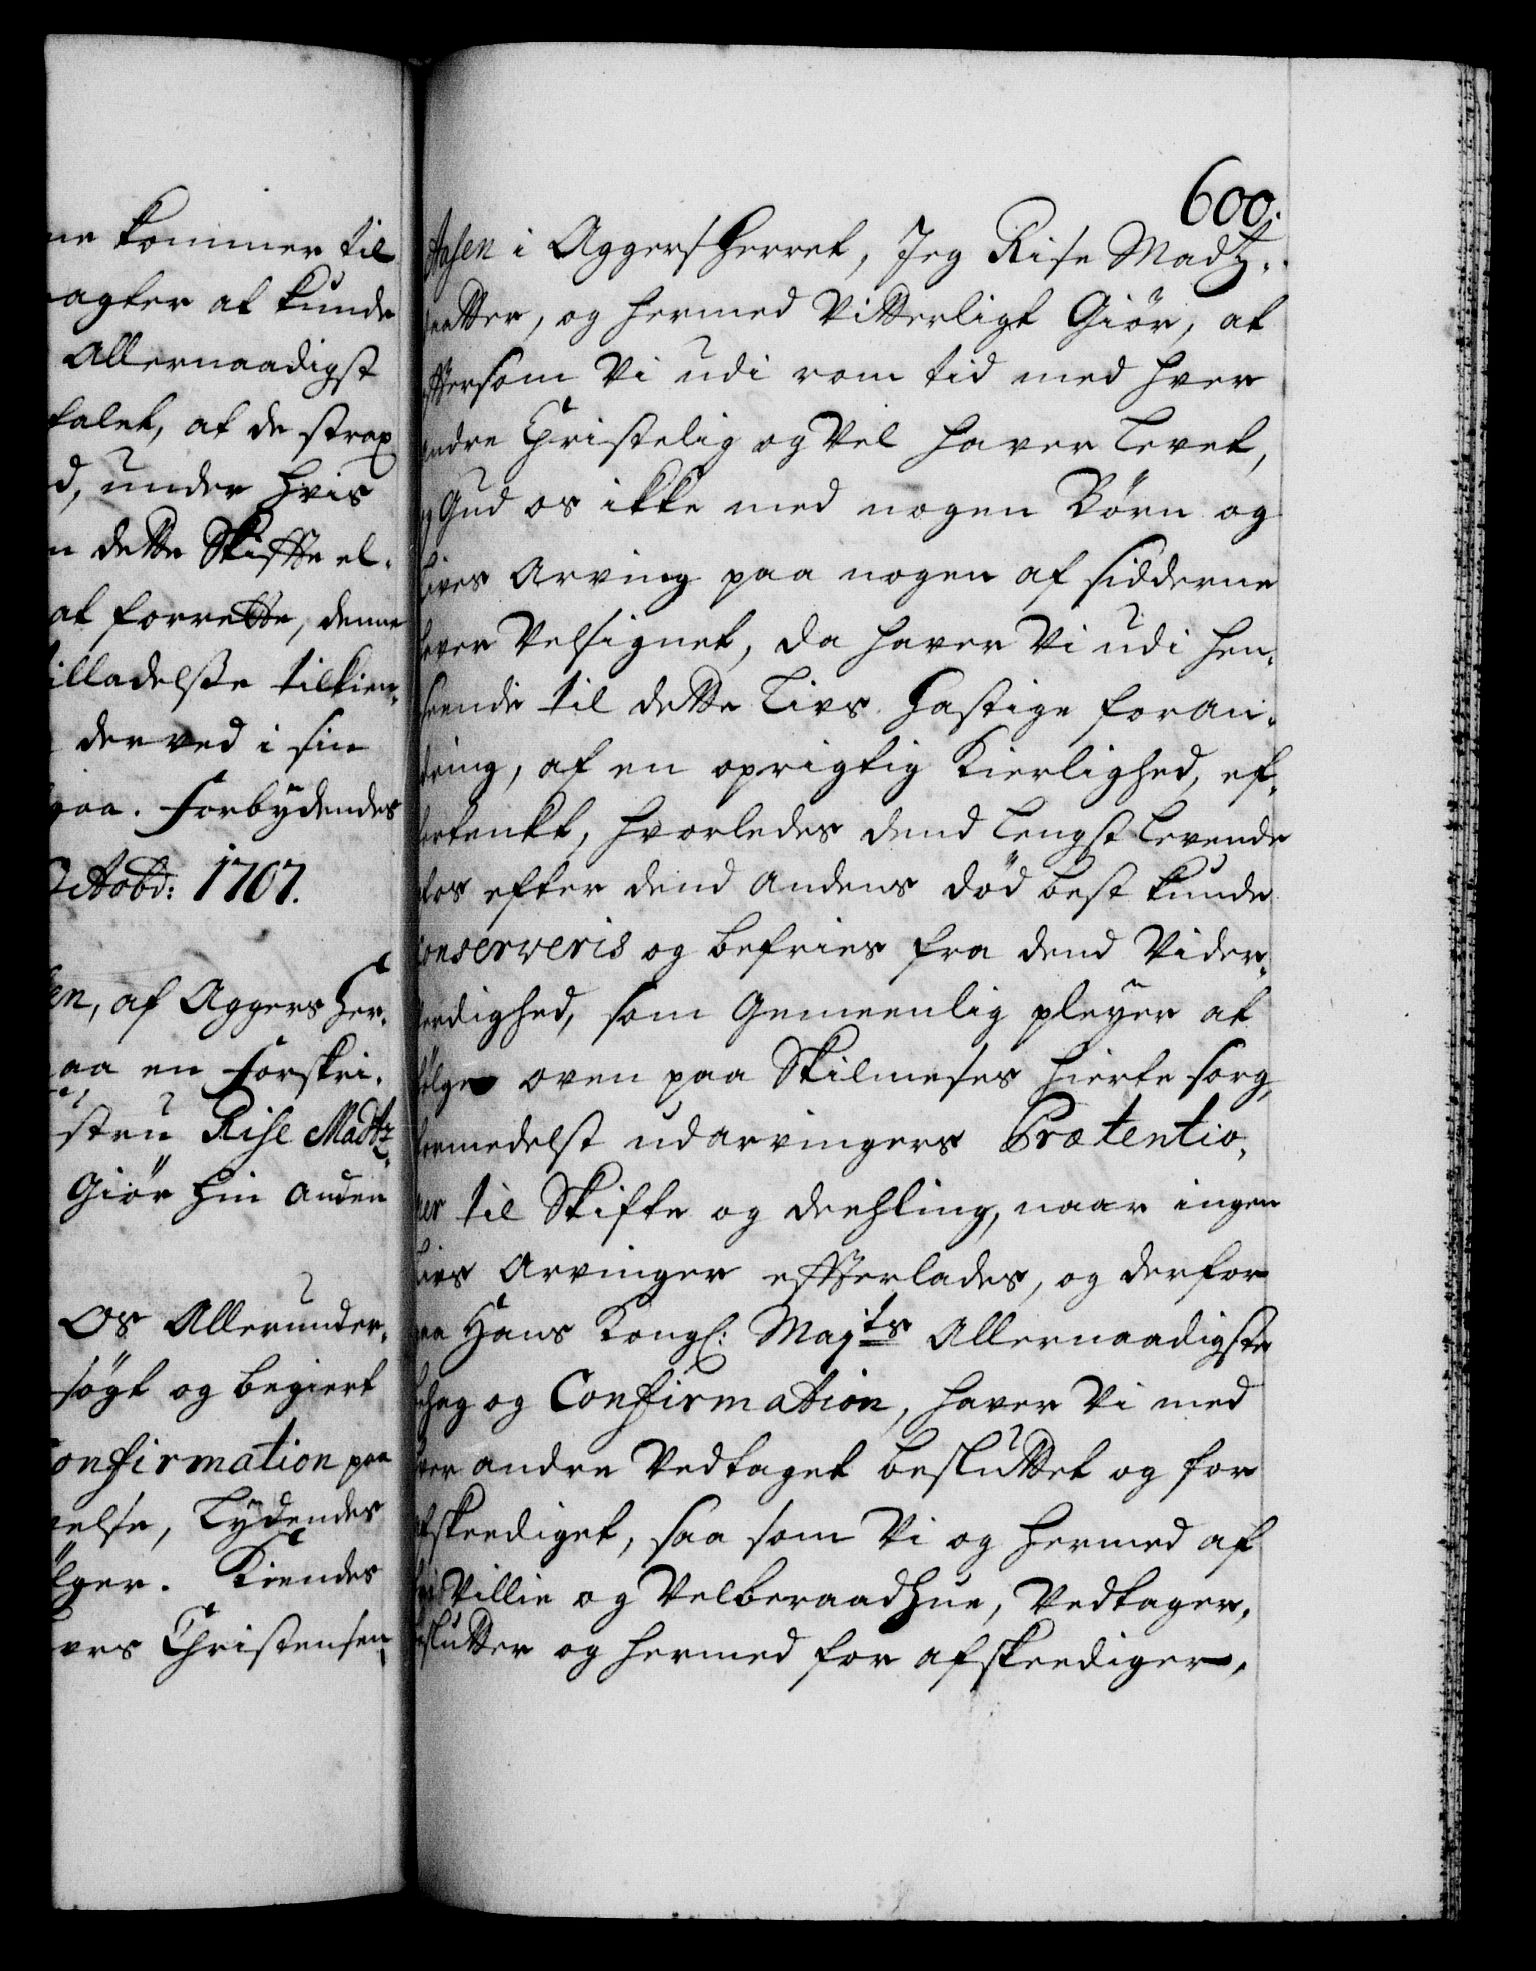 ne kommer til
agter at kunde
Allernaadigst
talet, at de strax
d, under hvis
n dette Skiffte el-
at forrette, denne
illadelsse tilkien-
derved i sin
gaa. Forbydendes
Octobd: 1707.
en, af Aggers Her-
aa en Forskri-
stru Rise Madtz
Giör hin anden
Os Allerunder-
sögt og begiert
onfirmation paa
else, Lydendes
ölger. Kiendes
vers Christensen
600.
Aasen i Aggersherret, Jeg Rise Madtz-
daatter, og hermed Vitterligt Giör, at
efftersom Vi udi rom tid med hver
andre Christelig og Vel haver Levet,
og Gud os ikke med nogen Börn og
Lives Arving paa nogen af sidderne
haver Velsignet, da haver Vi udi hen-
seende til dette Livs hastige foran-
dring, af en oprigtig Kierlighed, ef-
tertenkt, hvorledes dend Lengst Levende
af os efter dend andens död best kunde
Conserveris og befries fra dend Vider-
verdighed, som Gemeenlig pleyer at
fölge oven paa Skilmeses hierte sorg,
formedelst udarvingers Prætentio-
ner til Skifte og deehling, naar ingen
Livs Arvinger effterlades, og derfor
paa Hans Kongl: Majts Allernaadigste
behag og Confirmation, haver Vi med
hver andre Vedtaget besluttet og for
afskeediget, saa som Vi og hermed af
frj Villie og Velberaad Hue, Vedtager,
beslutter og hermed for afskeediger,